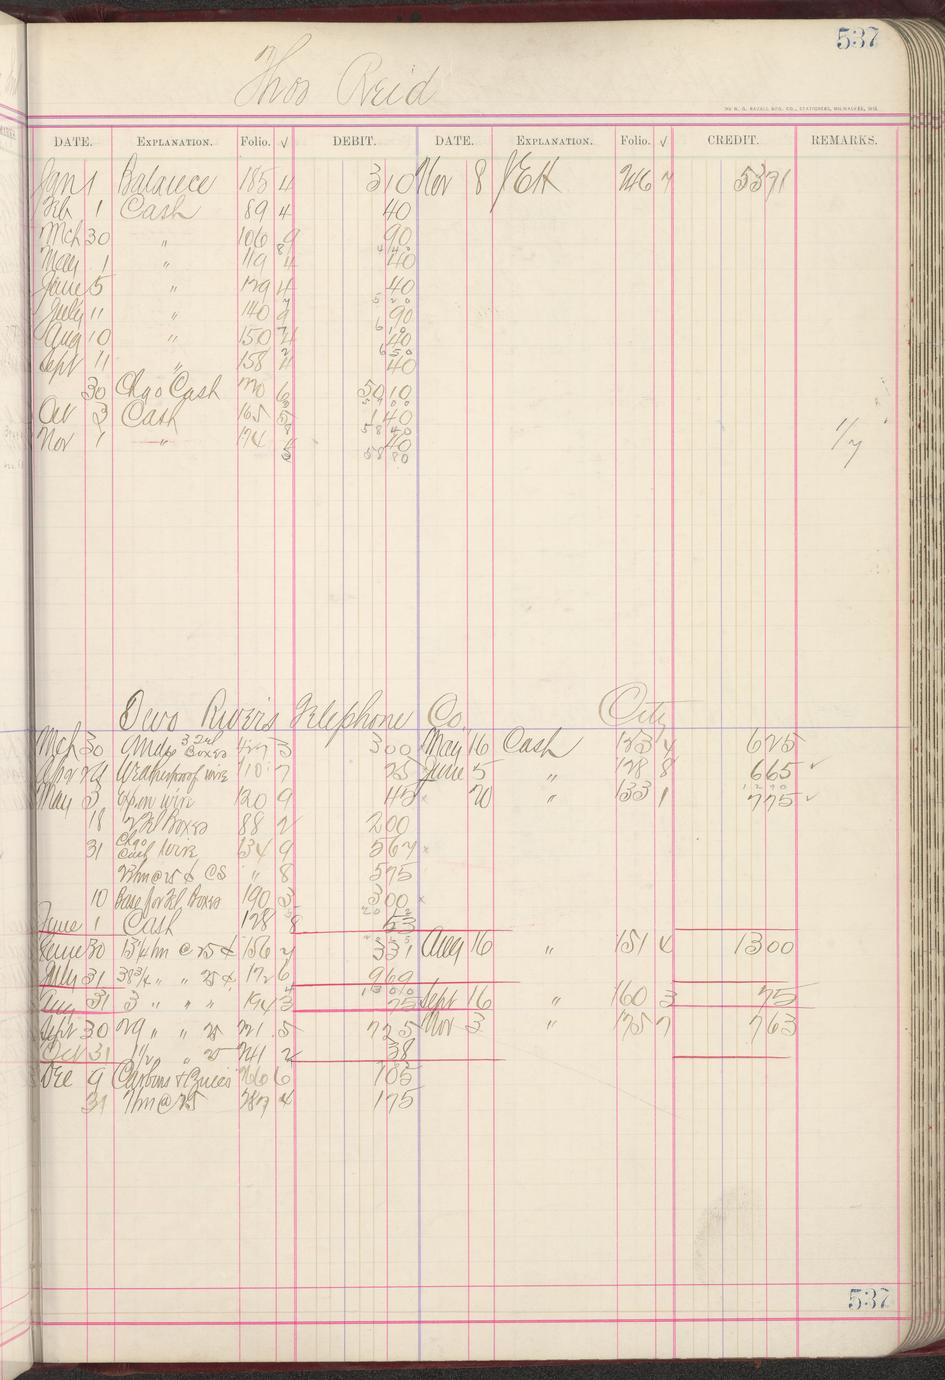 537
Thos Reid
THE H. G. RAZALL MFG. CO., STATIONERS, MILWAUKEE, WIS.
DATE. EXPLANATION. Folio. √ DEBIT. DATE. EXPLANATION. Folio. √ CREDIT. REMARKS.
Jan 1 Balance 185 4 310 Nov 8 JEH 246 7 5391
Feb 1 Cash 89 4 40
Mch 30 " 106 9 90
May 1 " 119 4 40
June 5 " 129 4 40
July 11 " 140 9 90
Aug 10 " 150 4 40
Sept 11 " 158 4 40
30 Chgo Cash 170 6 5010
Oct 3 Cash 165 5 140
Nov 1 " 174 4 40
5880
1/7
Two Rivers Telephone Co. City
Mch 30 3 2nd Boxes 3 300 May 16 Cash 123 4 625
Apr 29 Weatherproof wire 110 7 25 June 5 " 128 8 665 ✓
May 3 wire 120 9 45 × 20 " 133 1 775 ✓
18 2 Boxes 88 2 200
31 Chgo Cash Wire 134 9 567 ×
23 hm @ 25 ¢ CS " 8 575
10 Base for Tel. Boxes 190 3 300 ×
June 1 Cash 128 8 53
June 30 13¼ hm @ 25 ¢ 156 7 331 Aug 16 " 151 4 1300
July 31 38¾ " " 25 ¢ 172 6 969
1300
Aug 31 3 " " " 194 3 75 Sept 16 " 160 3 75
Sept 30 29 " " 25 221 5 725 Nov 3 " 175 7 763
Oct 31 1½ " 25 241 2 38
Dec 9 Carbons & 266 6 105
31 7 hm @ 25 287 4 175
537